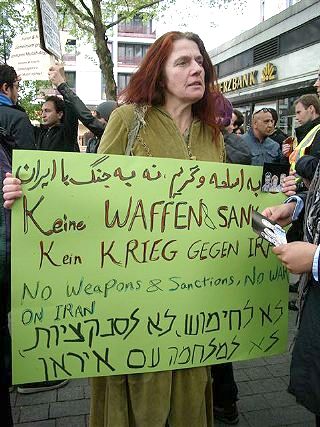 RZBANK
به اسلحه و تحریم، نه به جنگ با ایران
Keine WAFFEN & SAN
Kein KRIEG GEGEN IR
No Weapons & Sanctions, No WAR
ON IRAN
לא לחימוש, לא לסנקציות,
לא למלחמה עם איראן